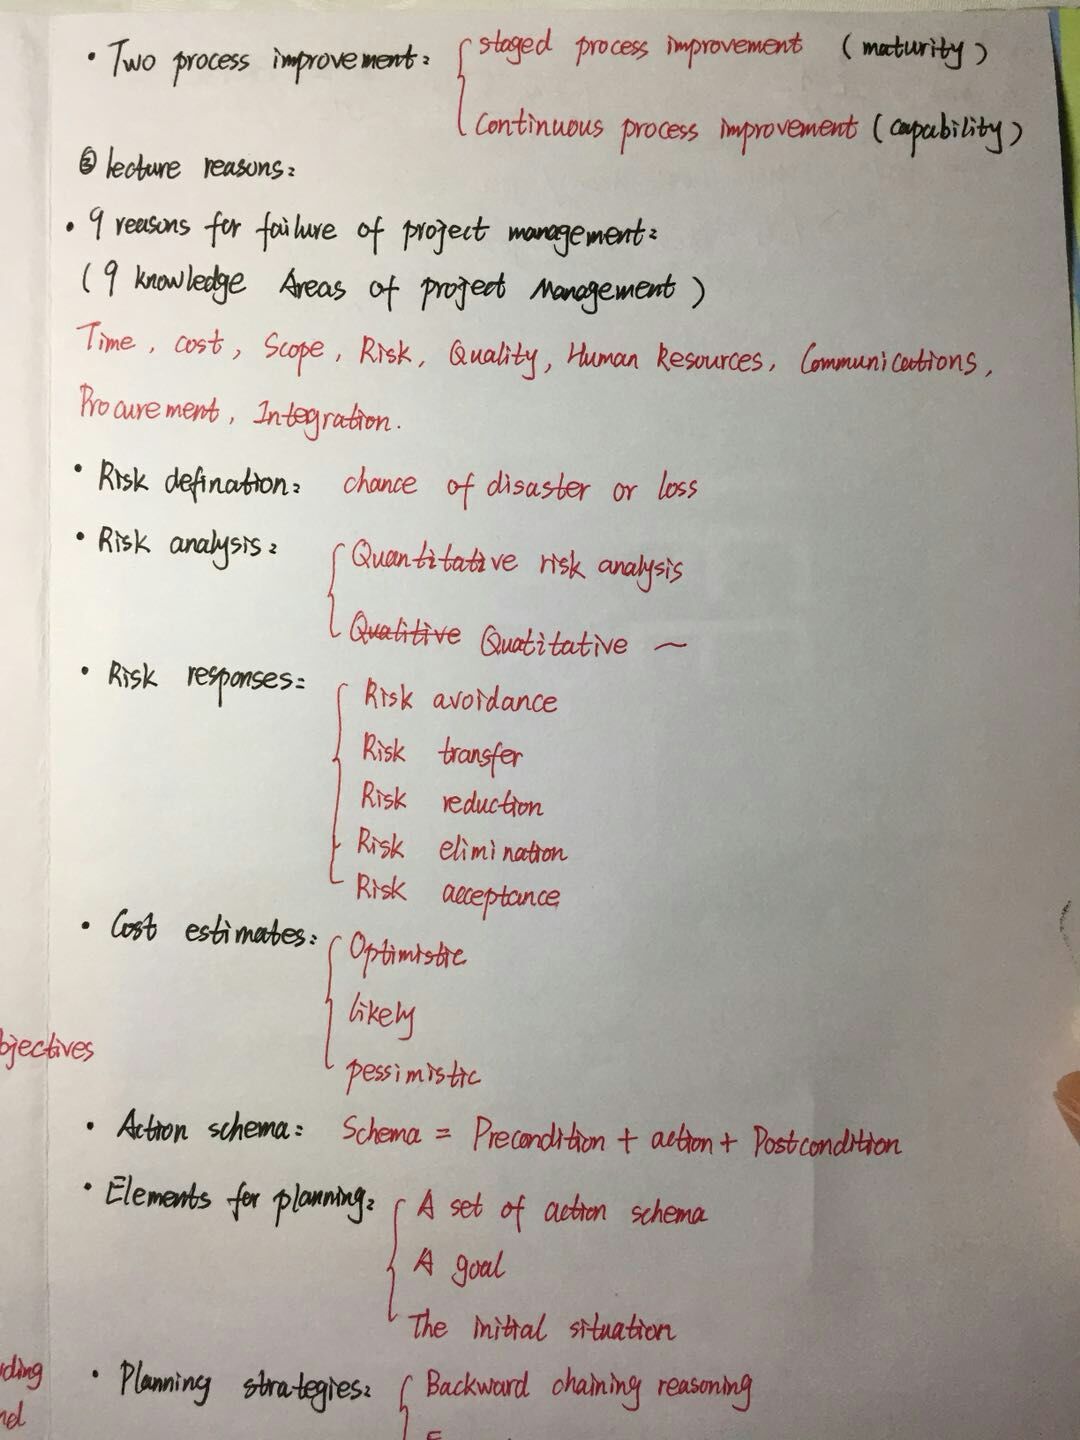 • Two process improvement: staged process improvement (maturity)
continuous process improvement (capability)
③ lecture reasons:
• 9 reasons for failure of project management:
(9 knowledge Areas of project Management)
Time, cost, Scope, Risk, Quality, Human Resources, Communications,
Procurement, Integration.
• Risk defination: chance of disaster or loss
• Risk analysis: Quantitative risk analysis
Qualitive Quatitative ~
• Risk responses: Risk avoidance
Risk transfer
Risk reduction
Risk elimination
Risk acceptance
• Cost estimates: Optimistic
likely
pessimistic
bjectives
• Action schema: Schema = Precondition + action + Postcondition
• Elements for planning: A set of action schema
A goal
The initial situation
• Planning strategies: Backward chaining reasoning
uding
nd